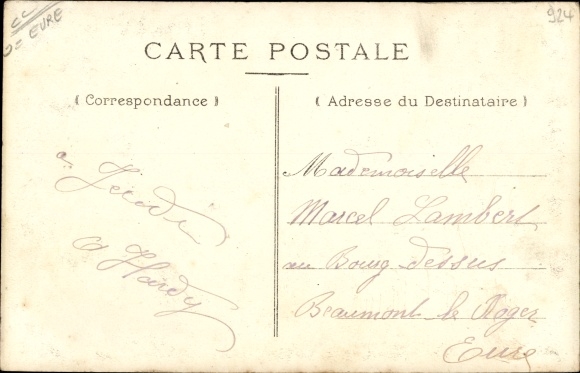 cc
= EURE
924
CARTE POSTALE
( Correspondance )
( Adresse du Destinataire )
a Jeudi
Hardy
Mademoiselle
Marcel Lambert
au Bourg dessus
Beaumont le Roger
Eure